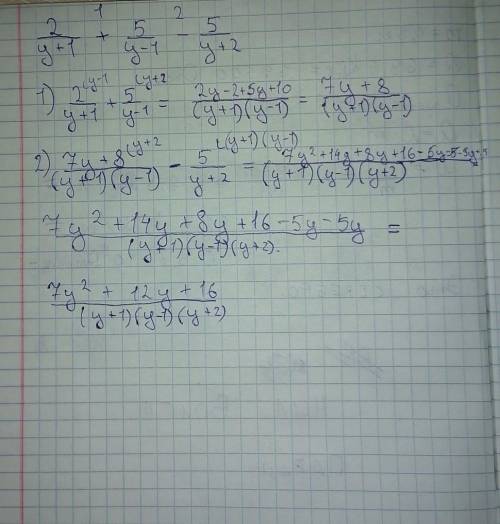 2/(y+1) +¹ 5/(y-1) -² 5/(y+2)
1) 2^(y-1/(y+1) + 5^(y+2/(y-1) = (2y-2+5y+10)/((y+1)(y-1)) = (7y+8)/((y+1)(y-1))
2) 7y+8^(y+2/((y+1)(y-1)) - 5^((y+1)(y-1)/(y+2) = 7y²+14y+8y+16-5y-5-5y+/((y+1)(y-1)(y+2)
(7y²+14y+8y+16-5y-5y)/((y+1)(y-1)(y+2). =
(7y²+12y+16)/((y+1)(y-1)(y+2))